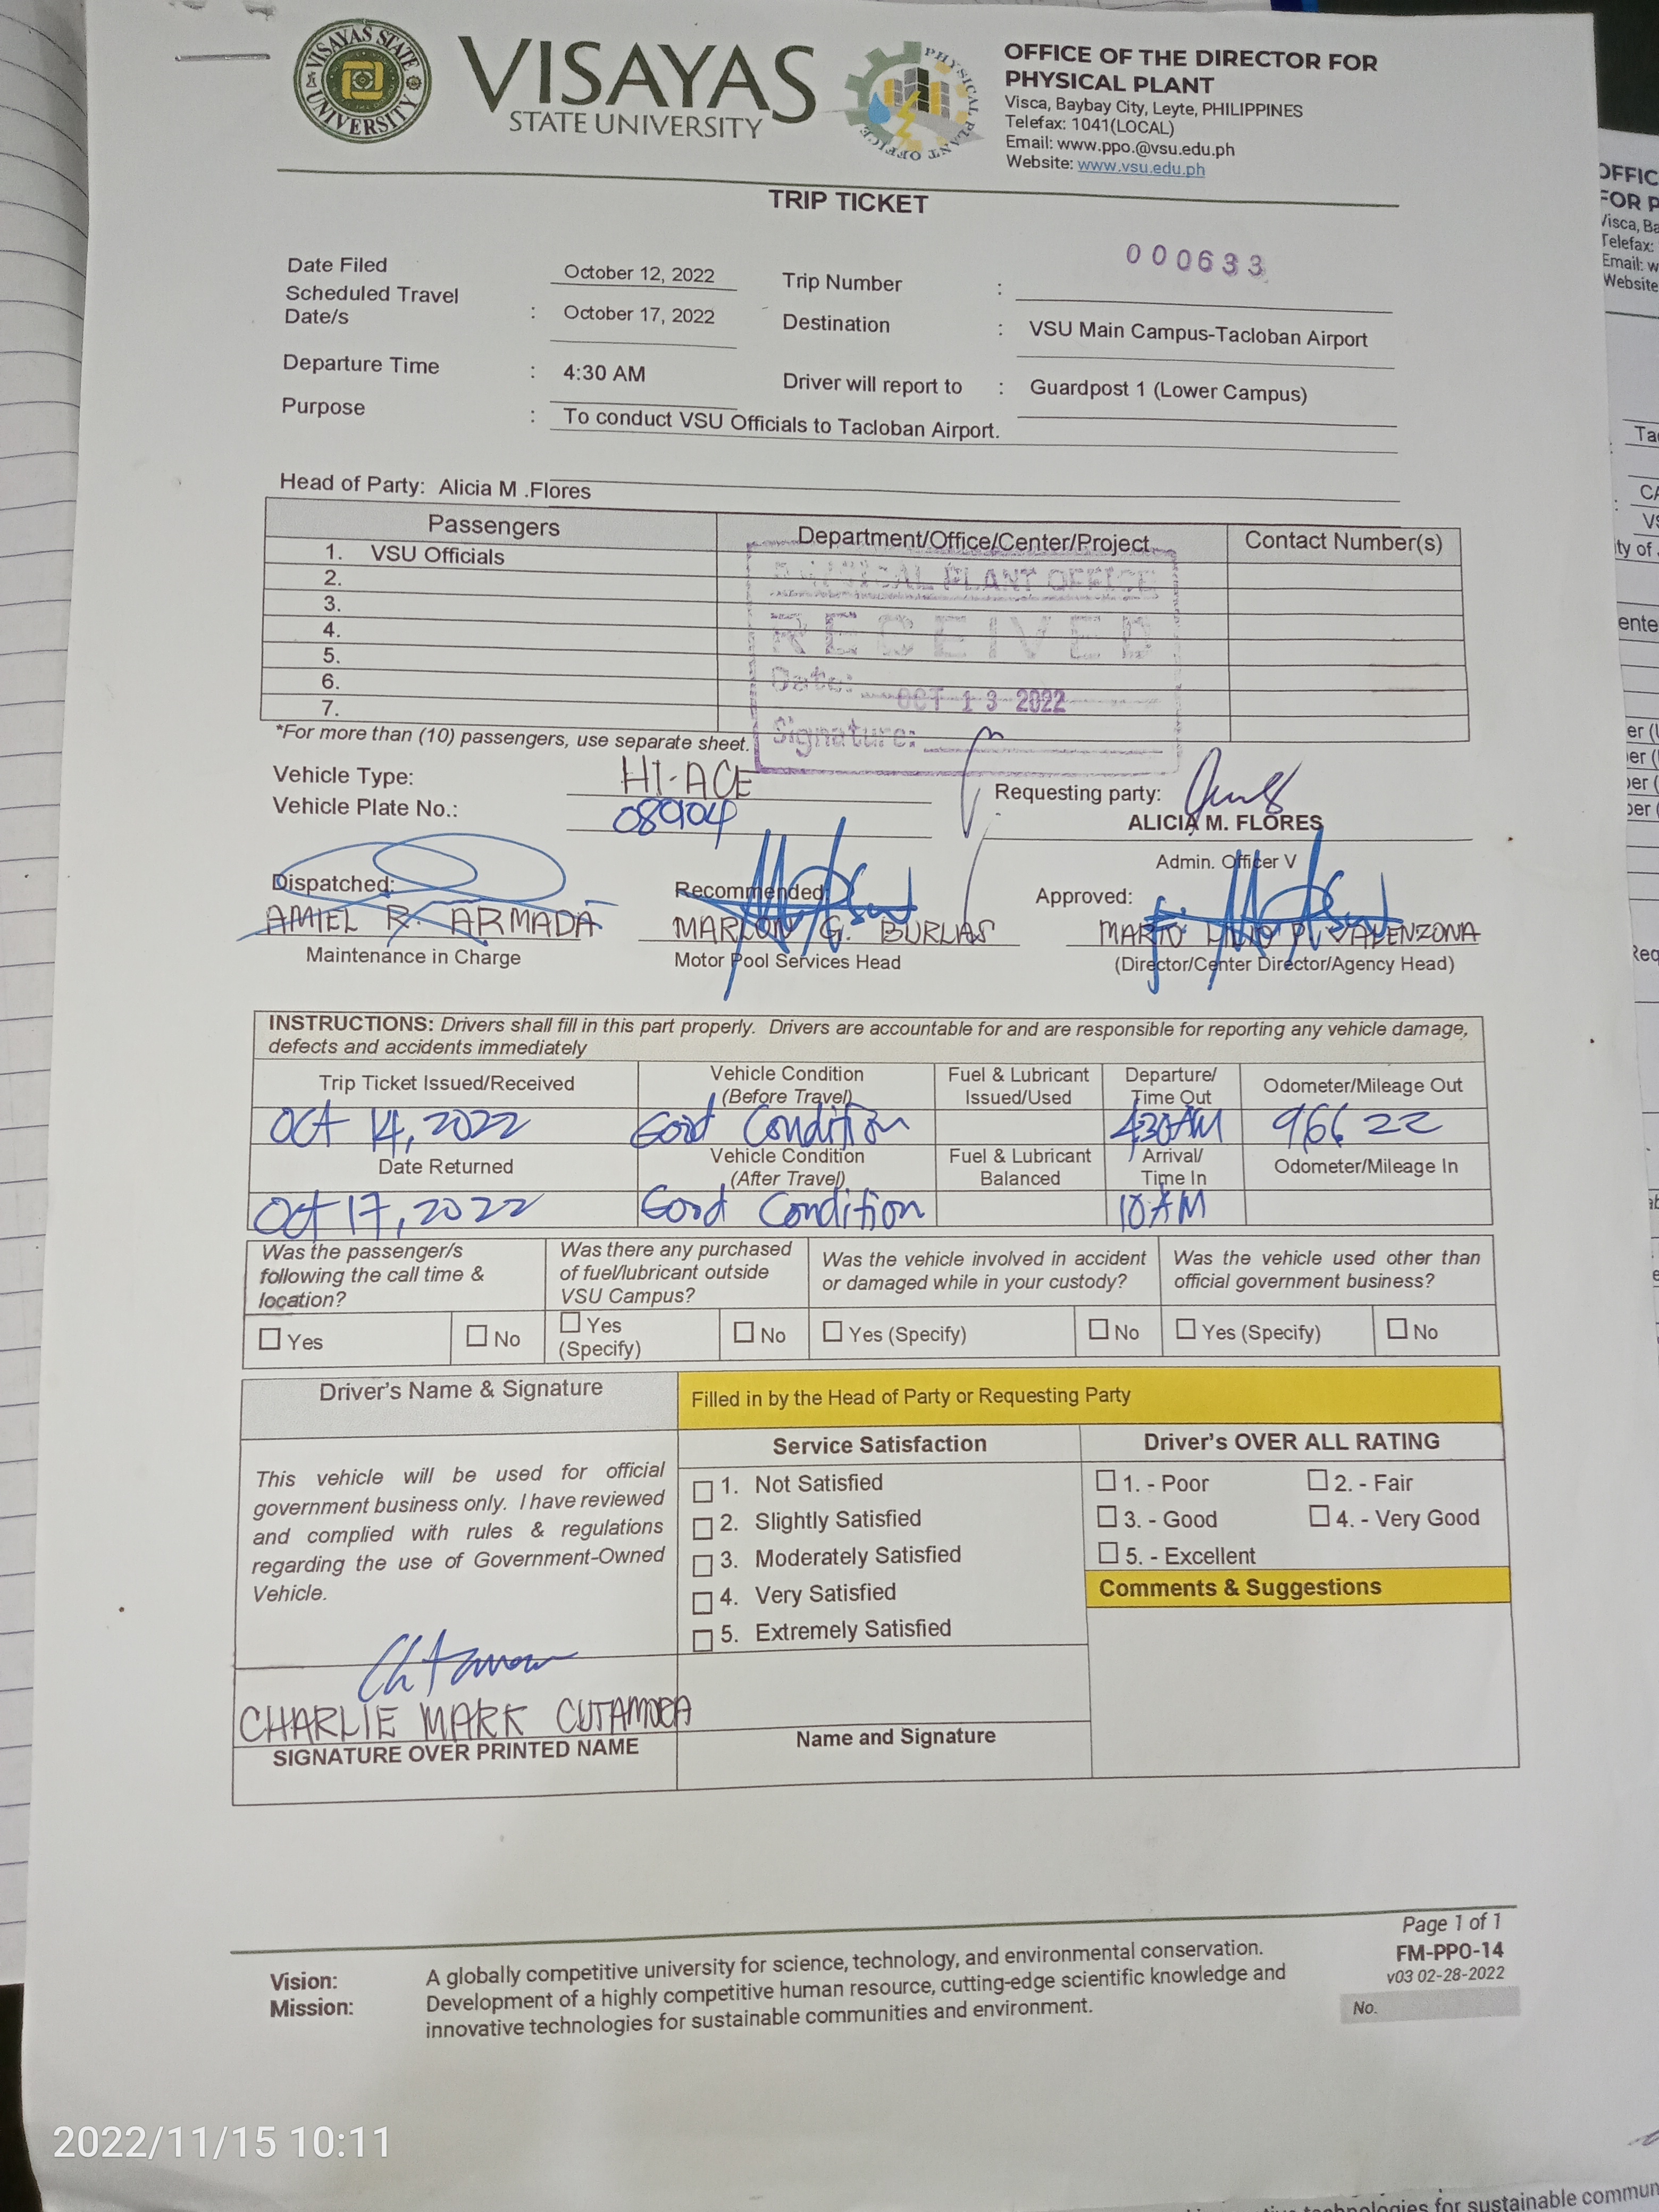 VISAYAS STATE UNIVERSITY
VISAYAS
STATE UNIVERSITY
PHYSICAL PLANT OFFICE
OFFICE OF THE DIRECTOR FOR
PHYSICAL PLANT
Visca, Baybay City, Leyte, PHILIPPINES
Telefax: 1041(LOCAL)
Email: www.ppo.@vsu.edu.ph
Website: www.vsu.edu.ph
TRIP TICKET
000633
Date Filed October 12, 2022 Trip Number :
Scheduled Travel Date/s : October 17, 2022 Destination : VSU Main Campus-Tacloban Airport
Departure Time : 4:30 AM Driver will report to : Guardpost 1 (Lower Campus)
Purpose : To conduct VSU Officials to Tacloban Airport.
Head of Party: Alicia M .Flores
Passengers Department/Office/Center/Project Contact Number(s)
1. VSU Officials
2.
3.
4.
5.
6.
7.
PHYSICAL PLANT OFFICE
RECEIVED
Date: OCT 13 2022
Signature:
*For more than (10) passengers, use separate sheet.
Vehicle Type: HI-ACE
Vehicle Plate No.: 08904
Requesting party:
ALICIA M. FLORES
Admin. Officer V
Dispatched: Recommended: Approved:
AMIEL R. ARMADA MARLON G. BURLAS MARIO LILIO P. VALENZONA
Maintenance in Charge Motor Pool Services Head (Director/Center Director/Agency Head)
INSTRUCTIONS: Drivers shall fill in this part properly. Drivers are accountable for and are responsible for reporting any vehicle damage,
defects and accidents immediately
Trip Ticket Issued/Received Vehicle Condition (Before Travel) Fuel & Lubricant Issued/Used Departure/ Time Out Odometer/Mileage Out
Oct 14, 2022 Good Condition 430AM 96622
Date Returned Vehicle Condition (After Travel) Fuel & Lubricant Balanced Arrival/ Time In Odometer/Mileage In
Oct 17, 2022 Good Condition 10 AM
Was the passenger/s following the call time & location? Was there any purchased of fuel/lubricant outside VSU Campus? Was the vehicle involved in accident or damaged while in your custody? Was the vehicle used other than official government business?
Yes No Yes (Specify) No Yes (Specify) No Yes (Specify) No
Driver's Name & Signature
Filled in by the Head of Party or Requesting Party
This vehicle will be used for official
government business only. I have reviewed
and complied with rules & regulations
regarding the use of Government-Owned
Vehicle.
CHARLIE MARK CUTAMORA
SIGNATURE OVER PRINTED NAME
Service Satisfaction
1. Not Satisfied
2. Slightly Satisfied
3. Moderately Satisfied
4. Very Satisfied
5. Extremely Satisfied
Name and Signature
Driver's OVER ALL RATING
1. - Poor 2. - Fair
3. - Good 4. - Very Good
5. - Excellent
Comments & Suggestions
Page 1 of 1
FM-PPO-14
v03 02-28-2022
No.
Vision: A globally competitive university for science, technology, and environmental conservation.
Mission: Development of a highly competitive human resource, cutting-edge scientific knowledge and
innovative technologies for sustainable communities and environment.
2022/11/15 10:11